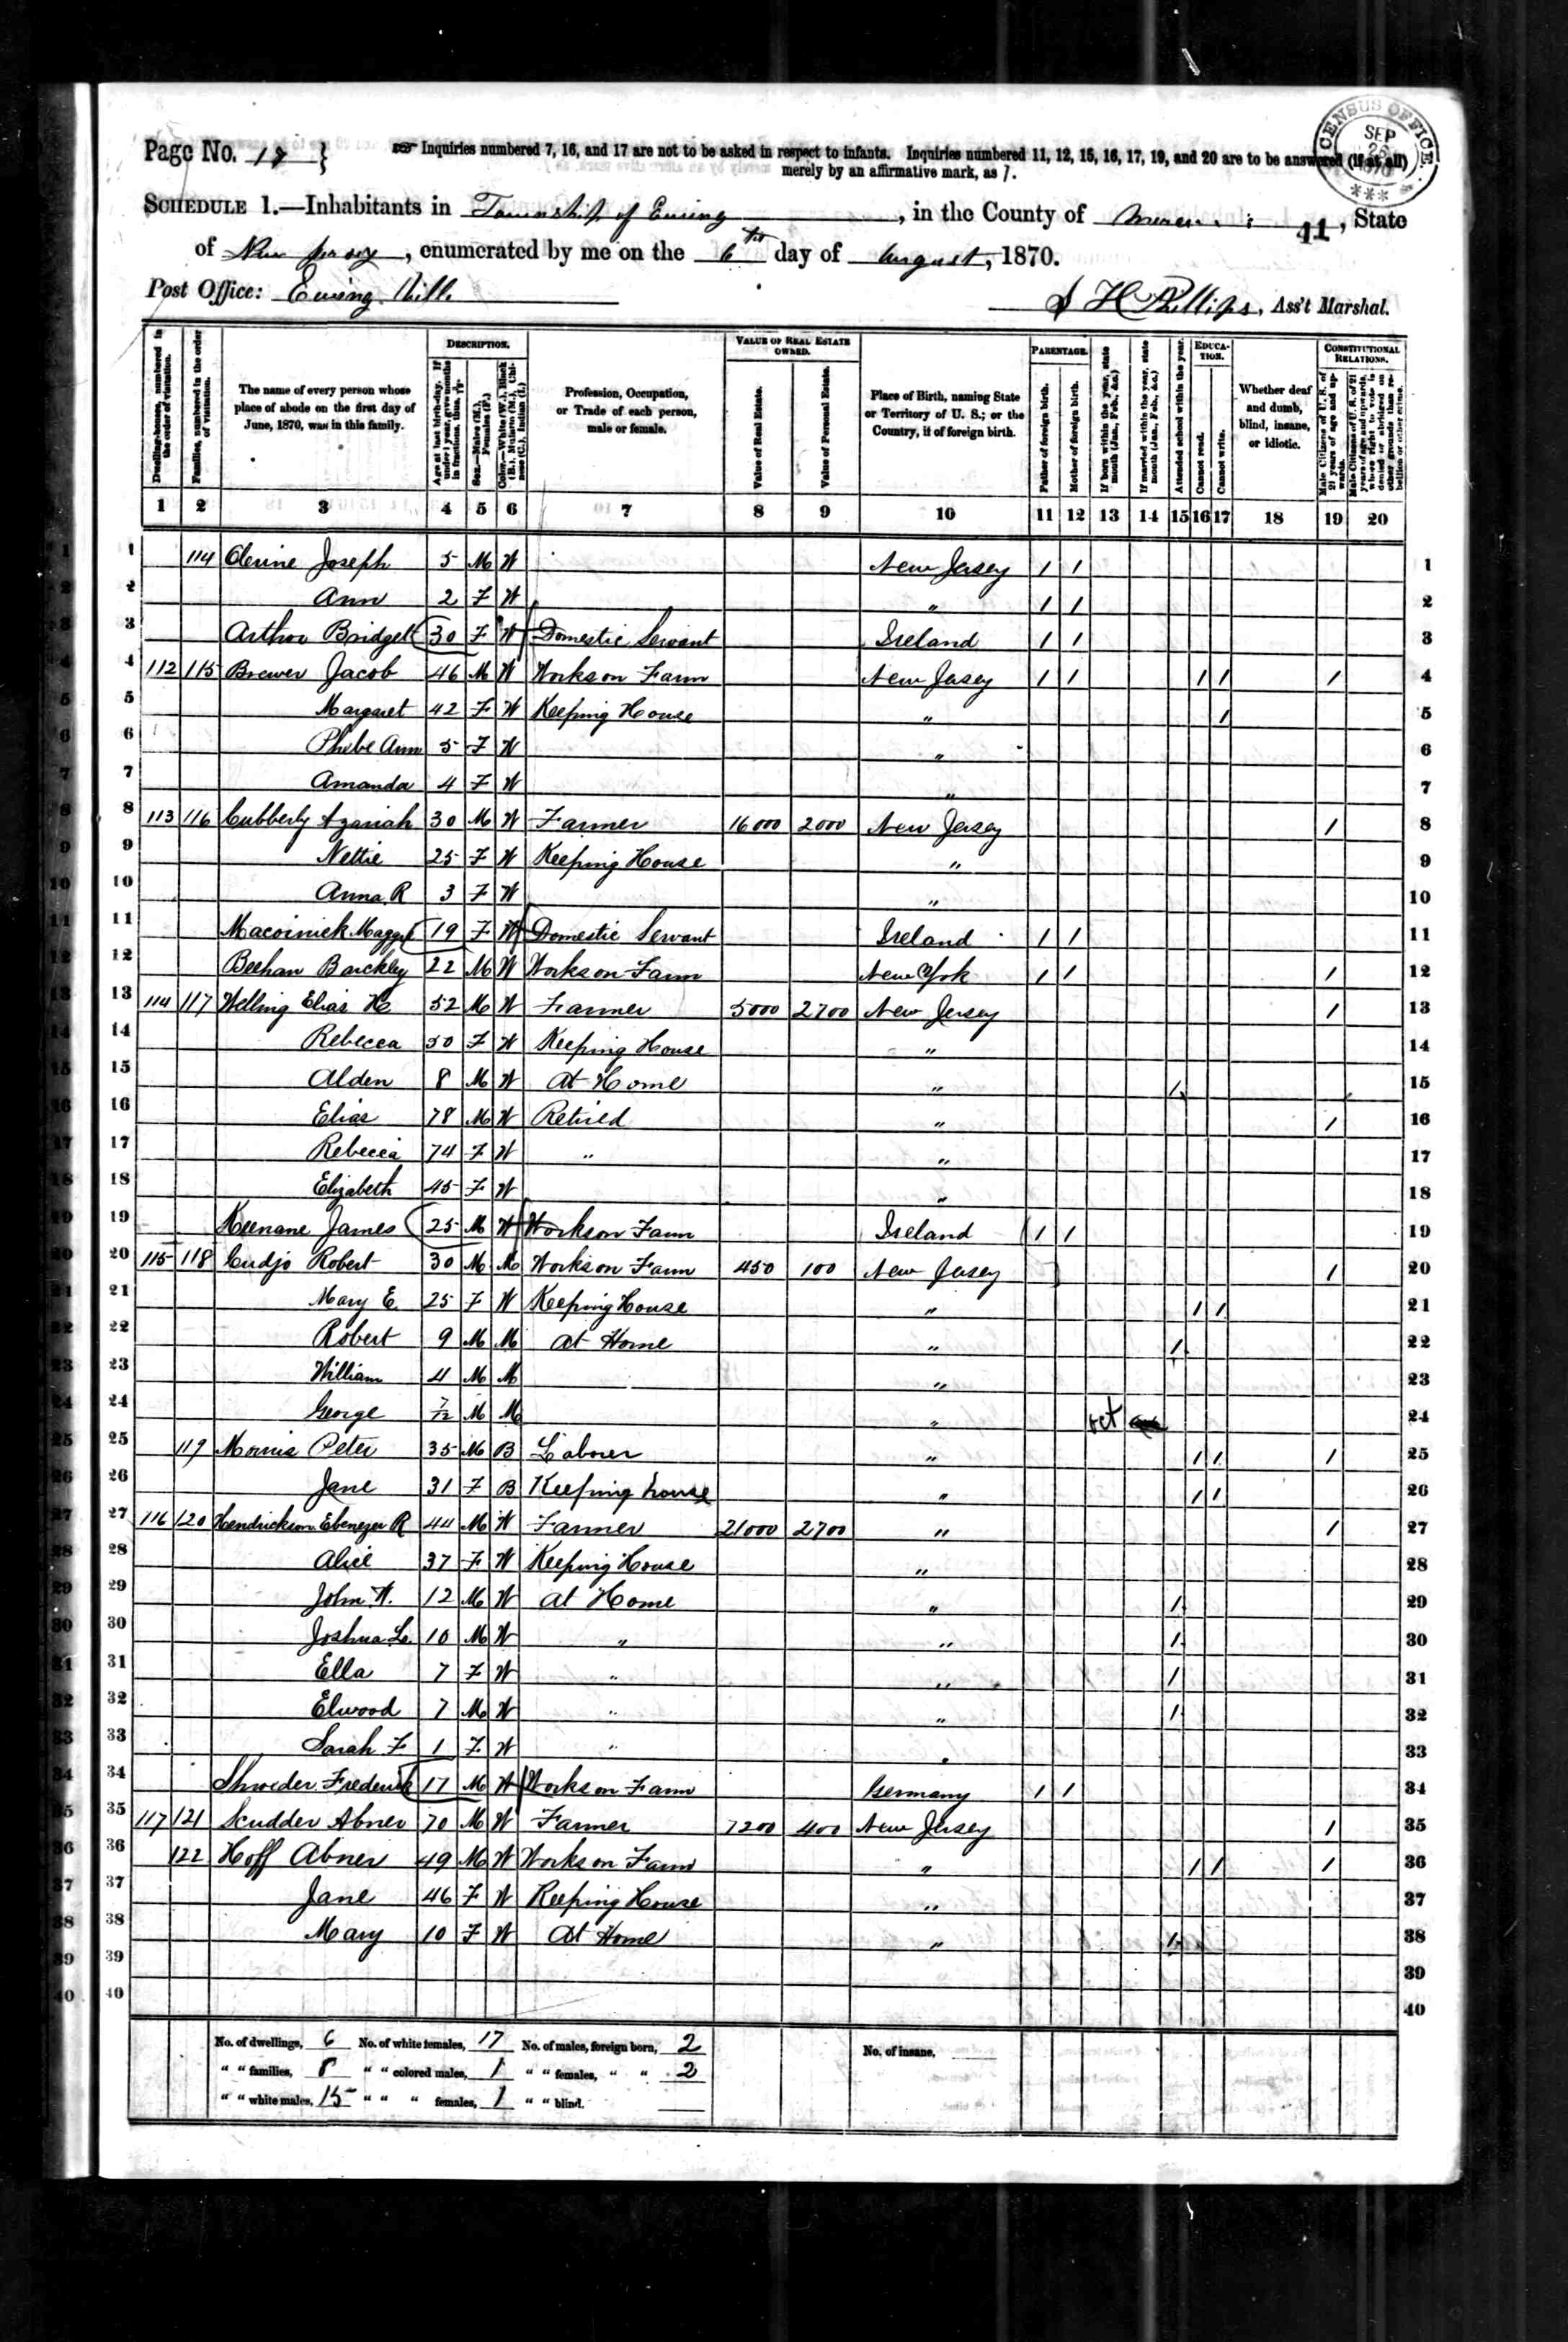 Page No. 17 }
Inquiries numbered 7, 16, and 17 are not to be asked in respect to infants. Inquiries numbered 11, 12, 15, 16, 17, 19, and 20 are to be answered (if at all)
merely by an affirmative mark, as /.
CENSUS OFFICE. SEP 1870 ***
SCHEDULE 1.—Inhabitants in Township of Ewing, in the County of 41, State
of New Jersey, enumerated by me on the 6th day of August, 1870.
Post Office: Ewing Ville
H Phillips, Ass't Marshal.
Dwelling-houses, numbered in the order of visitation.
Families, numbered in the order of visitation.
The name of every person whose place of abode on the first day of June, 1870, was in this family.
DESCRIPTION.
Age at last birth-day. If under 1 year, give months in fractions, thus, 3/12
Sex.—Males (M.), Females (F.)
Color.—White (W.), Black (B.), Mulatto (M.), Chinese (C.), Indian (I.)
Profession, Occupation, or Trade of each person, male or female.
VALUE OF REAL ESTATE OWNED.
Value of Real Estate.
Value of Personal Estate.
Place of Birth, naming State or Territory of U. S.; or the Country, if of foreign birth.
PARENTAGE.
Father of foreign birth.
Mother of foreign birth.
If born within the year, state month (Jan., Feb., &c.)
If married within the year, state month (Jan., Feb., &c.)
Attended school within the year.
EDUCATION.
Cannot read.
Cannot write.
Whether deaf and dumb, blind, insane, or idiotic.
CONSTITUTIONAL RELATIONS.
Male Citizens of U. S. of 21 years of age and upwards.
Male Citizens of U. S. of 21 years of age and upwards, whose right to vote is denied or abridged on other grounds than rebellion or other crime.
1 2 3 4 5 6 7 8 9 10 11 12 13 14 15 16 17 18 19 20
1 114 Joseph 5 M W New Jersey / / 1
2 Ann 2 F W " / / 2
3 Bridget 30 F W Domestic Servant Ireland / / 3
4 112 115 Brewer Jacob 46 M W Works on Farm New Jersey / / / / / 4
5 Margaret 42 F W Keeping House " / 5
6 Phebe Ann 5 F W " 6
7 Amanda 4 F W " 7
8 113 116 Cubberly Azariah 30 M W Farmer 16000 2000 New Jersey / 8
9 Nettie 25 F W Keeping House " 9
10 Anna R 3 F W " 10
11 Maggie 19 F W Domestic Servant Ireland / / 11
12 Beehan Barckley 22 M W Works on Farm New York / / / 12
13 114 117 Welling Elias H 52 M W Farmer 5000 2700 New Jersey / 13
14 Rebecca 50 F W Keeping House " 14
15 Alden 8 M W At Home " / 15
16 Elias 78 M W Retired " / 16
17 Rebecca 74 F W " " 17
18 Elizabeth 45 F W " 18
19 Keenane James 25 M W Works on Farm Ireland / / 19
20 115 118 Cudjo Robert 30 M M Works on Farm 450 100 New Jersey / 20
21 Mary E. 25 F W Keeping House " / / 21
22 Robert 9 M M At Home " / 22
23 William 4 M M " 23
24 George 7/12 M M " oct 24
25 119 Morris Peter 35 M B Laborer " / / / 25
26 Jane 31 F B Keeping house " / / 26
27 116 120 Hendrickson Ebenezer R 44 M W Farmer 21000 2700 " / 27
28 Alice 37 F W Keeping House " 28
29 John W. 12 M W At Home " / 29
30 Joshua L. 10 M W " " / 30
31 Ella 7 F W " " / 31
32 Elwood 7 M W " " / 32
33 Sarah F 1 F W " " 33
34 Shroeder Frederick 17 M W Works on Farm Germany / / 34
35 117 121 Scudder Abner 70 M W Farmer 7200 400 New Jersey / 35
36 122 Hoff Abner 49 M W Works on Farm " / / / 36
37 Jane 46 F W Keeping House " 37
38 Mary 10 F W At Home " / 38
39 39
40 40
No. of dwellings, 6 No. of white females, 17 No. of males, foreign born, 2 No. of insane,
" " families, 8 " " colored males, 1 " " females, " " 2
" " white males, 15 " " " females, 1 " " blind.